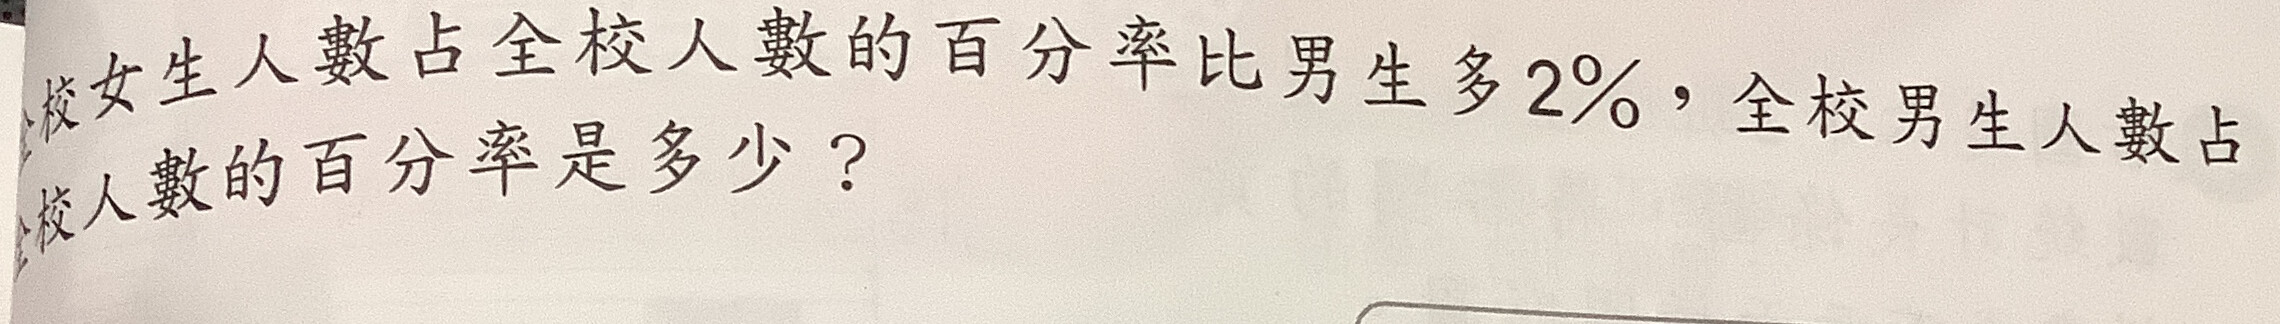 全校女生人數占全校人數的百分率比男生多2%，全校男生人數占
全校人數的百分率是多少？